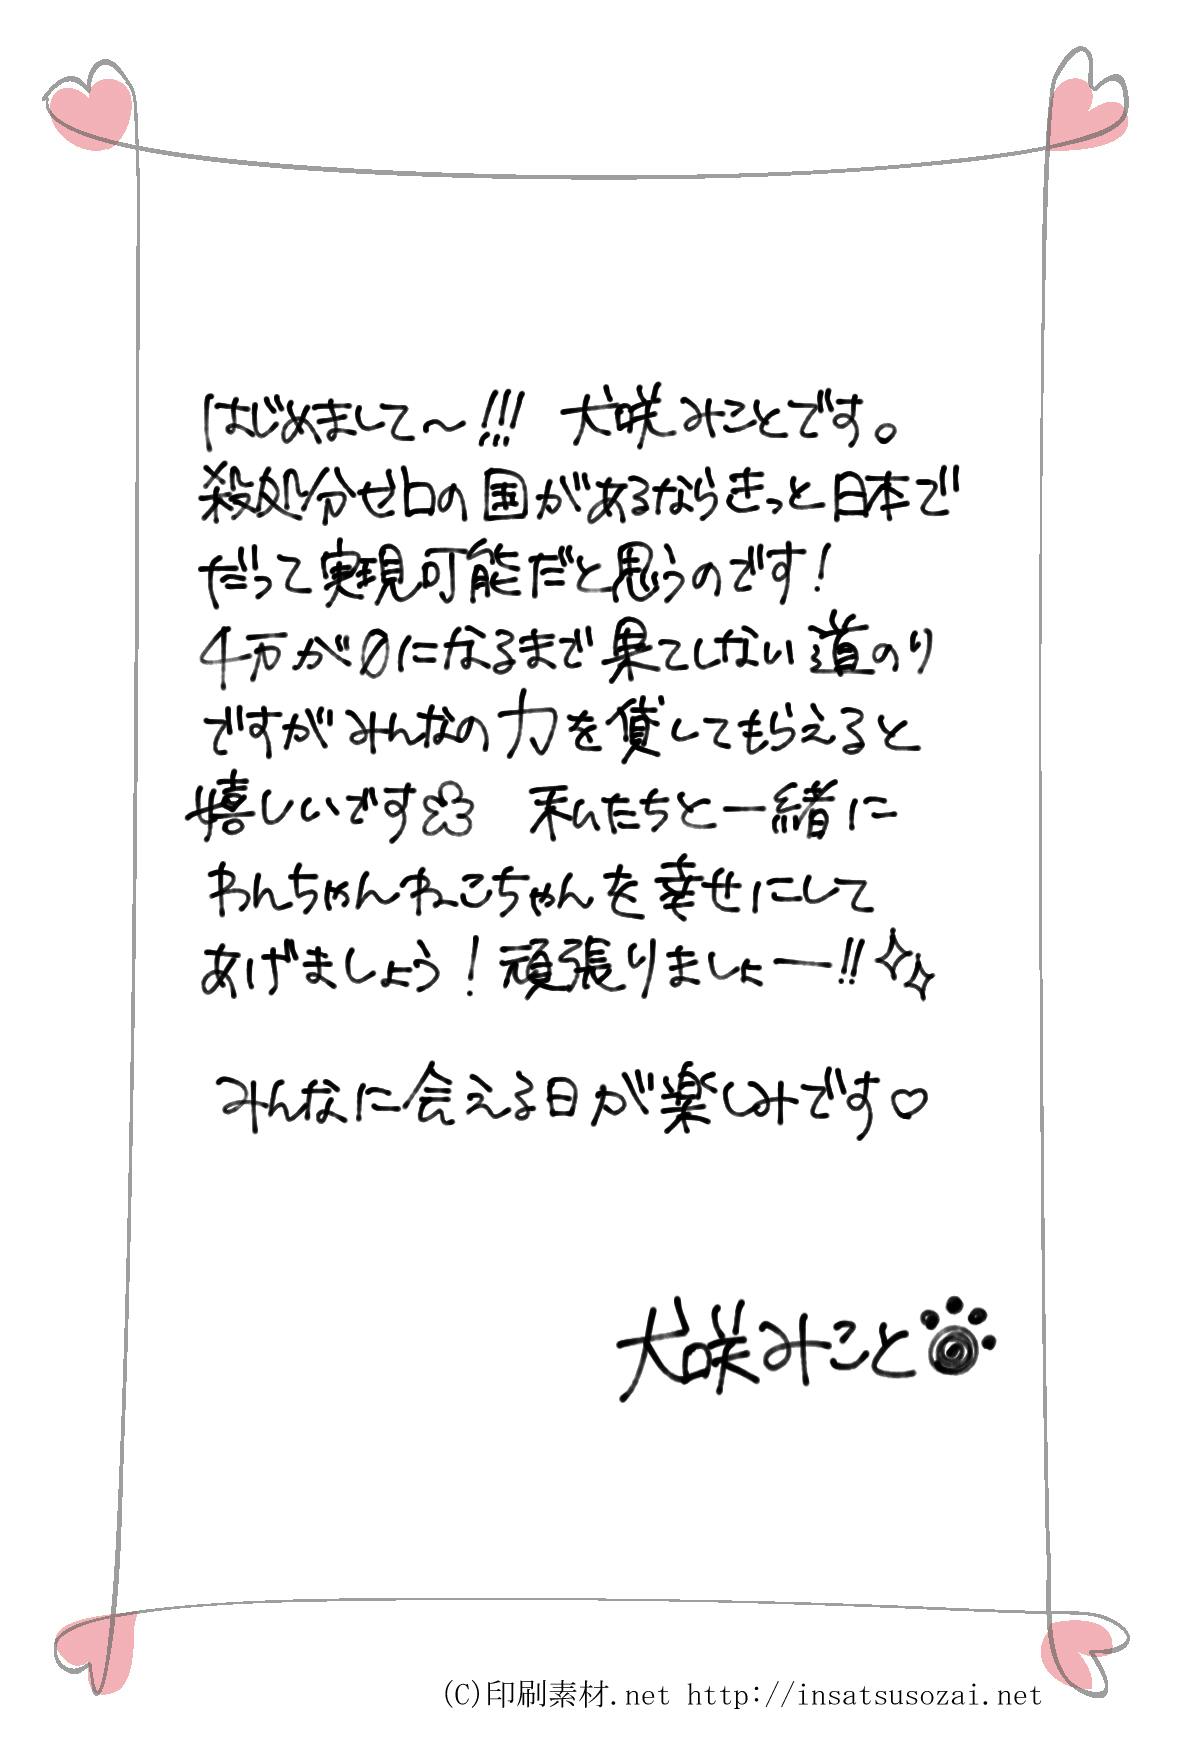 はじめまして〜!!! 犬咲みことです。
殺処分ゼロの国があるならきっと日本で
だって実現可能だと思うのです!
4万が0になるまで果てしない道のり
ですがみんなの力を貸してもらえると
嬉しいです 私たちと一緒に
わんちゃんねこちゃんを幸せにして
あげましょう!頑張りましょー!!
みんなに会える日が楽しみです♡
犬咲みこと
(C)印刷素材.net http://insatsusozai.net